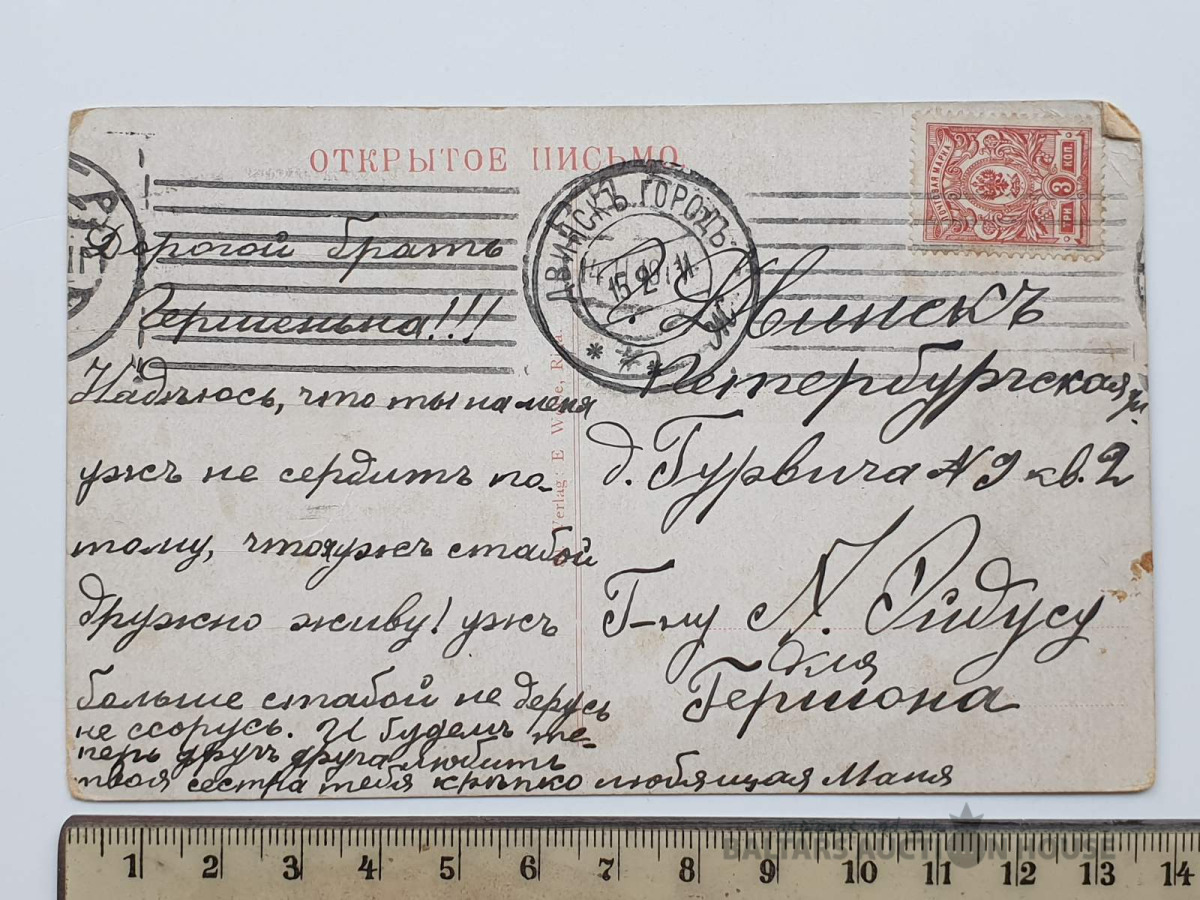 ОТКРЫТОЕ ПИСЬМО.
ПОЧТОВАЯ МАРКА
3 КОП.
ТРИ
ДВИНСКЪ ГОРОДЪ
15.2
Дорогой братъ
Гершенька!!!
Надѣюсь, что ты на меня
ужъ не сердитъ по-
тому, что я ужъ стабой
дружно живу! ужъ
больше стабой не дерусь
не ссорусь. И будемъ те-
перь другъ друга любить
твоя сестра тебя крѣпко любящая Маня
Verlag: E
Riga.
Двинскъ
Петербургская ул.
д. Гурвича № 9 кв. 2
Г-ну N. Ридусу
для
Гершона
1 2 3 4 5 6 7 8 9 10 11 12 13 14
BALTARS AUCTION HOUSE